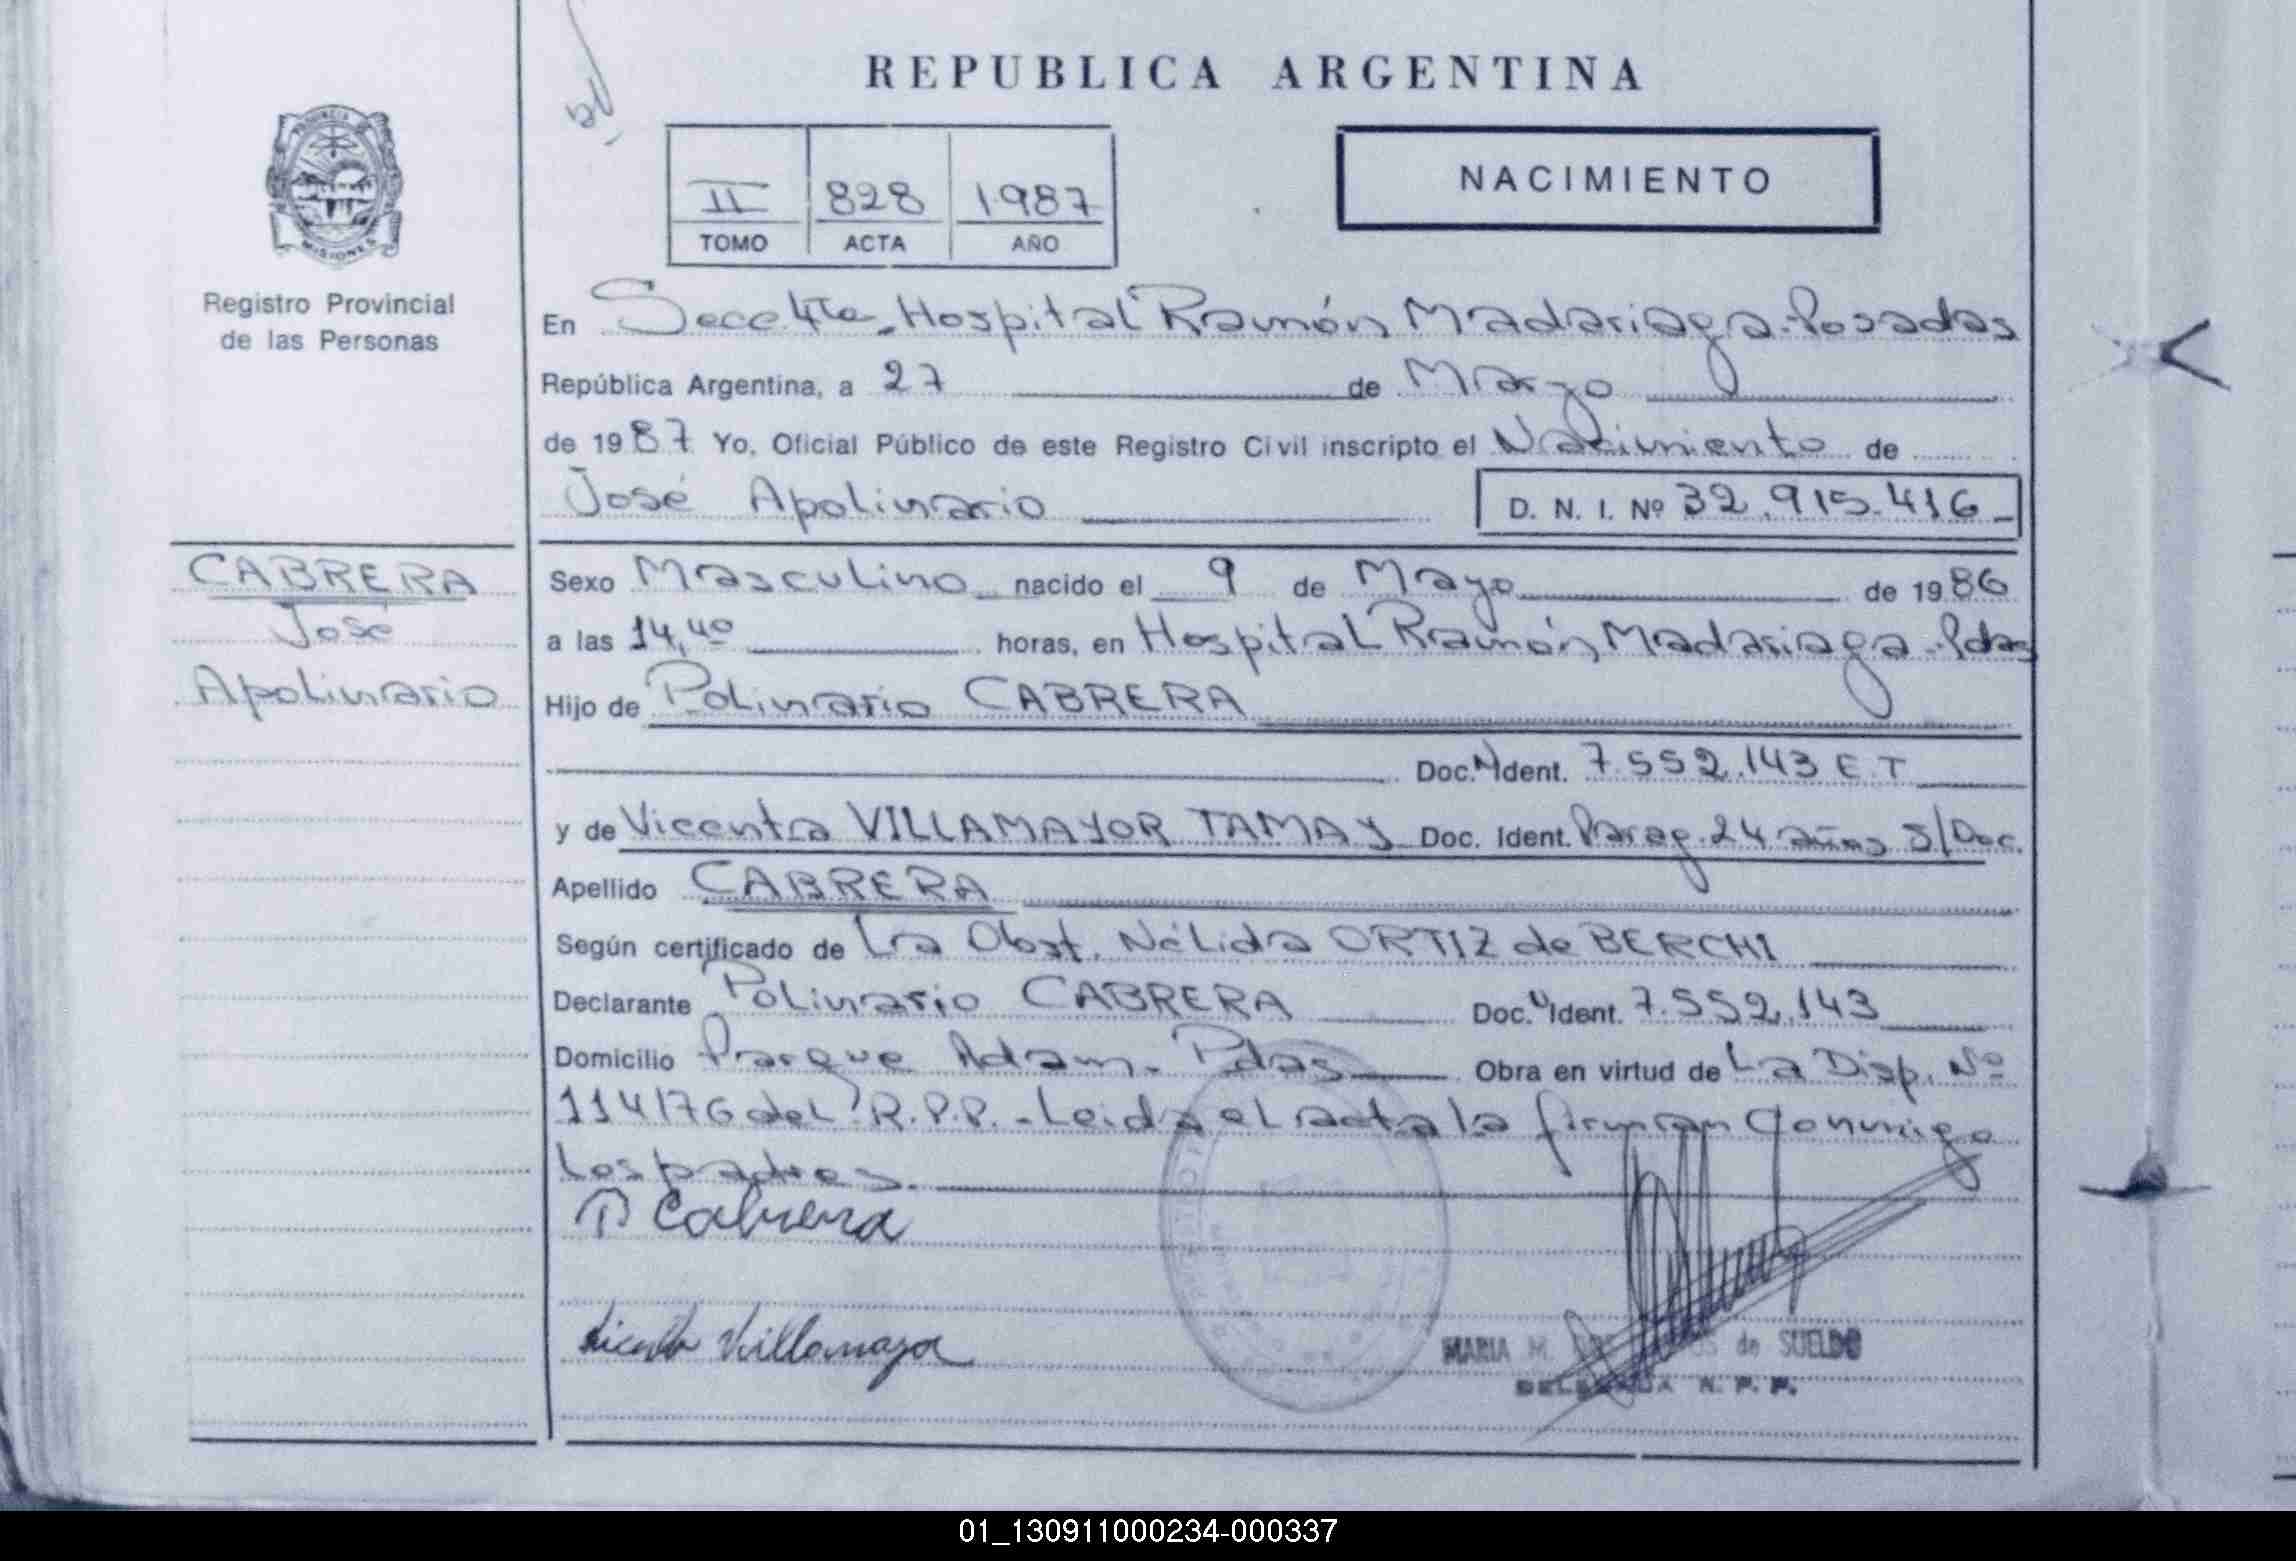 REPUBLICA ARGENTINA
PROVINCIA DE
MISIONES
Registro Provincial
de las Personas
II 828 1987
TOMO ACTA AÑO
NACIMIENTO
En Secc 4ta. Hospital Ramón Madariaga - Posadas
República Argentina, a 27 de Marzo
de 1987 Yo, Oficial Público de este Registro Civil inscripto el Nacimiento de
José Apolinario D. N. I. Nº 32.915.416
CABRERA
José
Apolinario
Sexo Masculino nacido el 9 de Mayo de 1986
a las 14,40 horas, en Hospital Ramón Madariaga - Pdas
Hijo de Polinario CABRERA
Doc. N Ident. 7.552.143 E.T
y de Vicenta VILLAMAYOR TAMAY Doc. Ident. Parag. 24 años S/Doc.
Apellido CABRERA
Según certificado de La Obst. Nélida ORTIZ de BERCHI
Declarante Polinario CABRERA Doc. N Ident. 7.552.143
Domicilio Parque Adam. Pdas Obra en virtud de La Disp. Nº
114/76 del R.P.P. - Leida el acta la firman conmigo
los padres.
P Cabrera
Villamayor
MARIA M. de SUELDO
DELEGADA R. P. P.
01_130911000234-000337